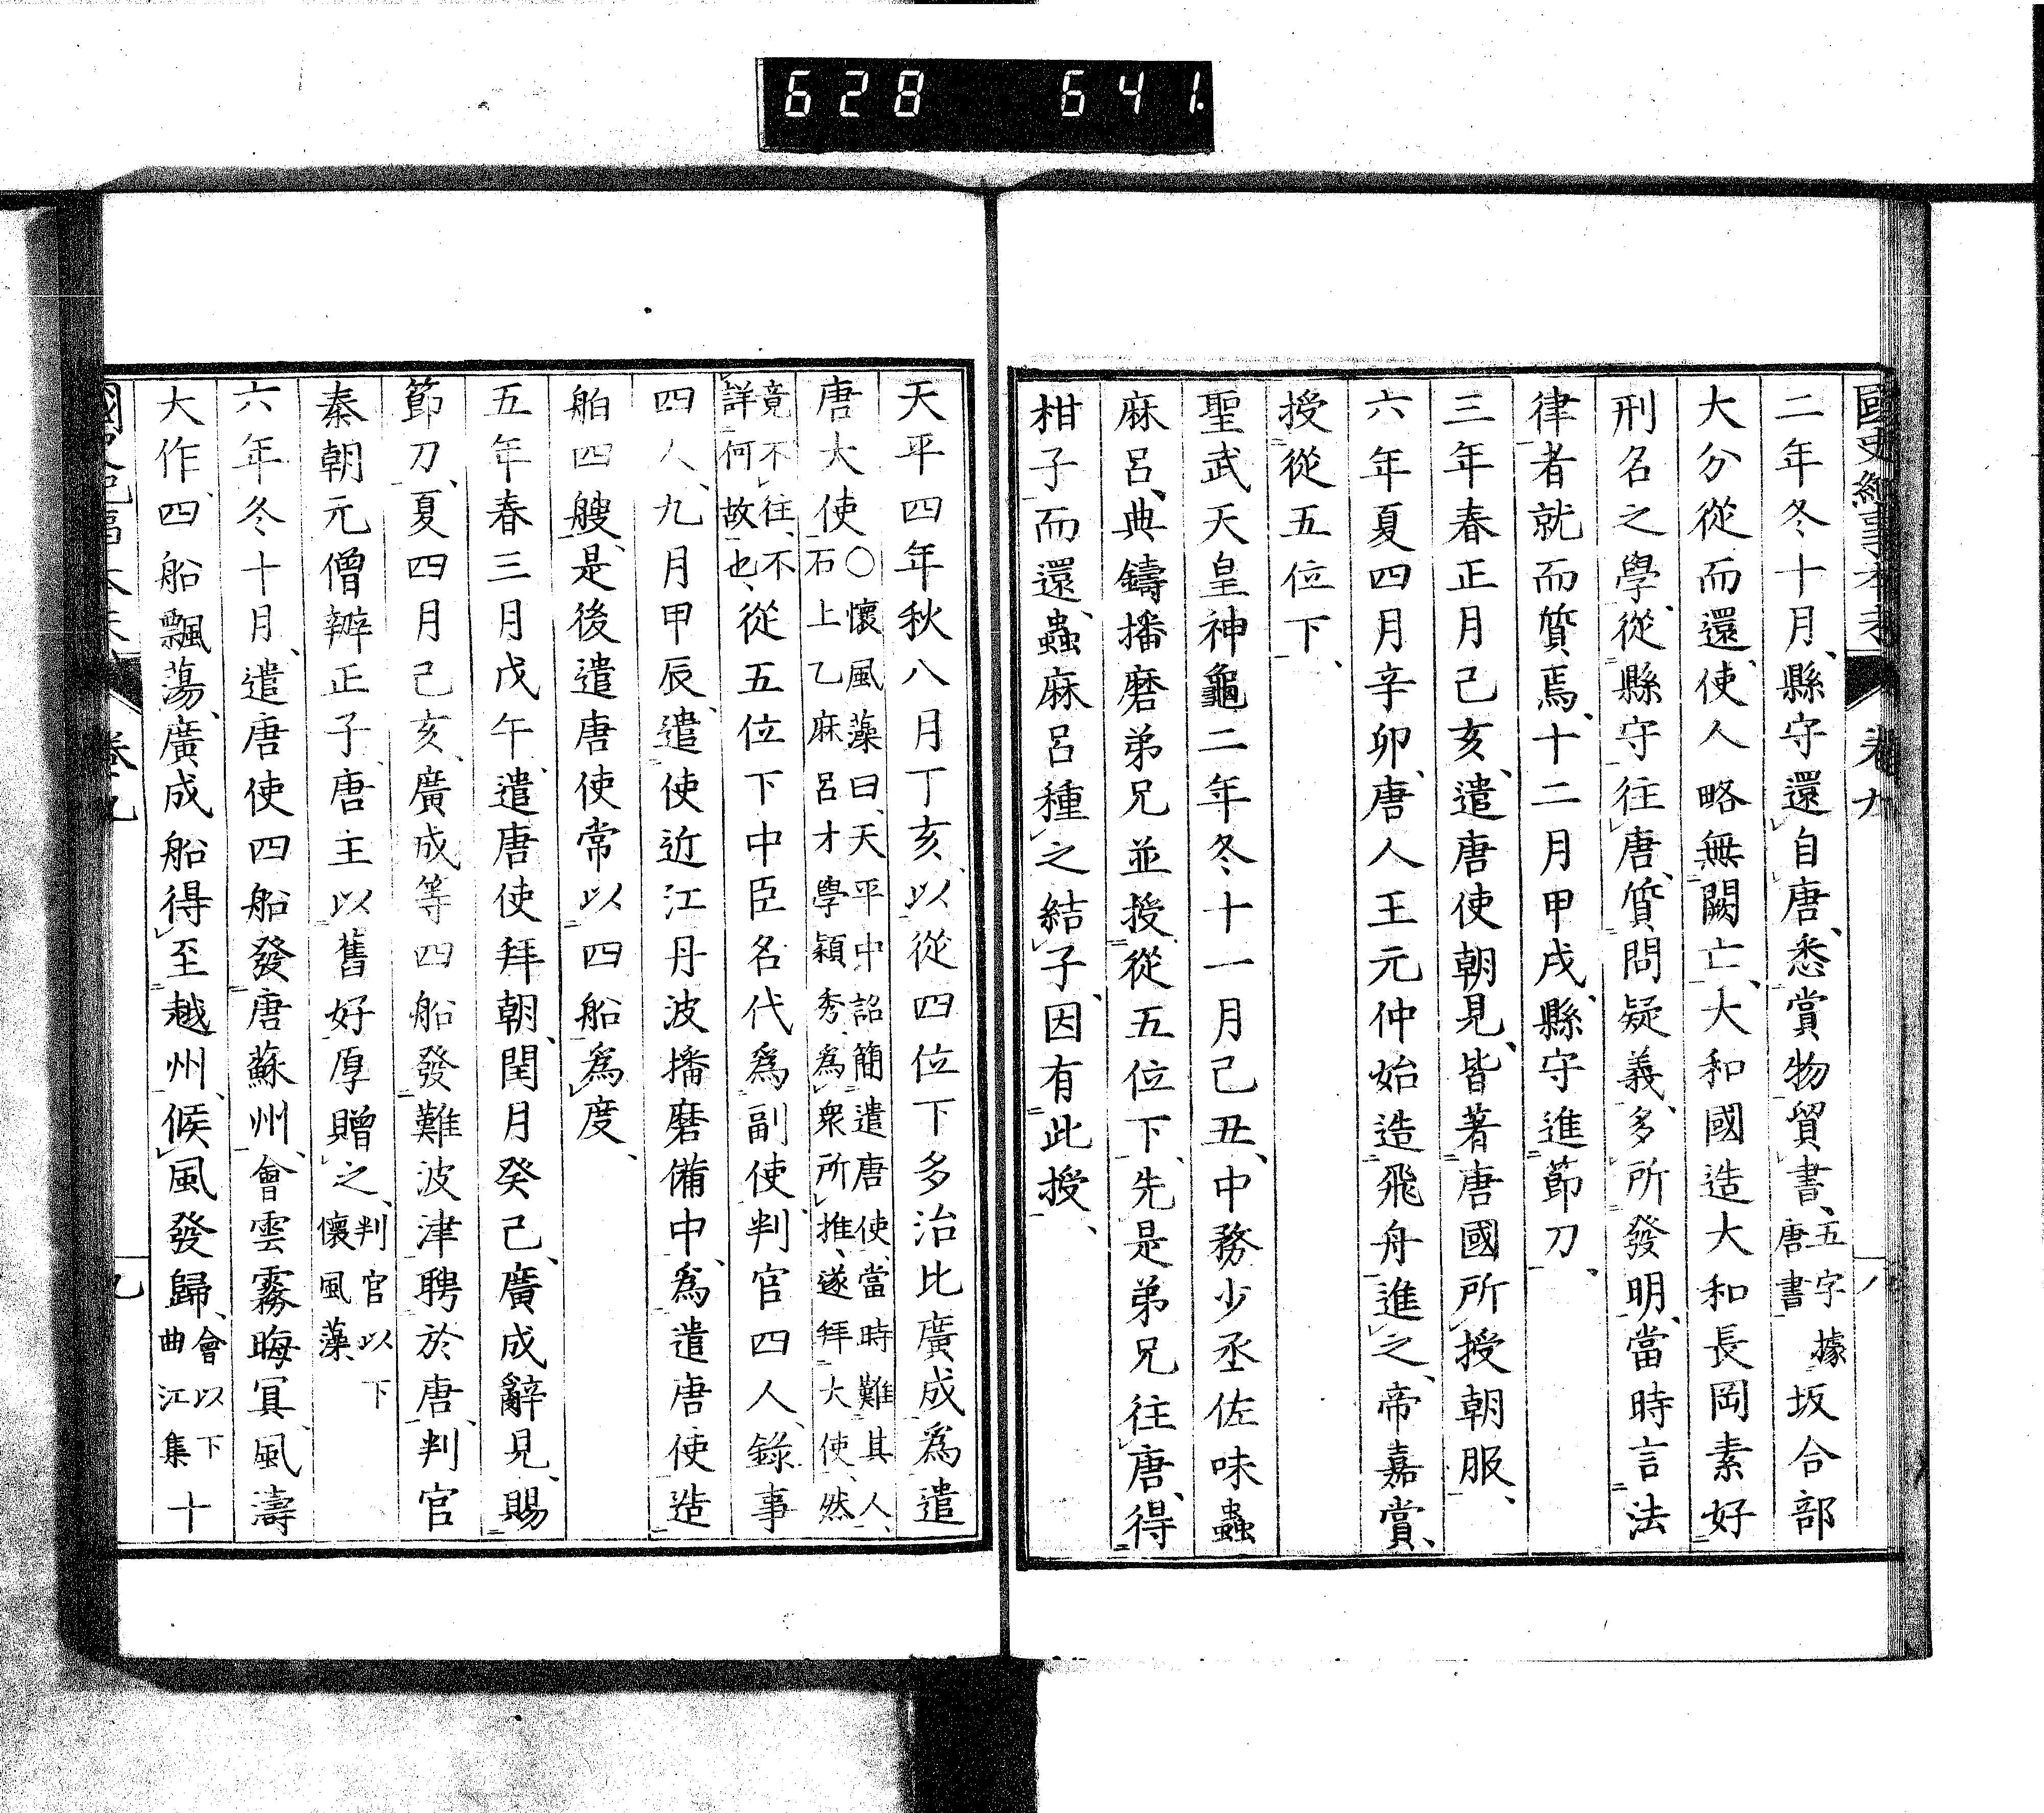 628 641.
國史紀事本末 卷九 八
二年冬十月、縣守還自唐、悉賞物貿書、五字據唐書坂合部
大分從而還、使人略無闕亡、大和國造大和長岡素好
刑名之學、從縣守往唐、質問疑義、多所發明、當時言法
律者就而質焉、十二月甲戌、縣守進節刀、
三年春正月己亥、遣唐使朝見、皆著唐國所授朝服、
六年夏四月辛卯、唐人王元仲始造飛舟進之、帝嘉賞、
授從五位下、
聖武天皇神龜二年冬十一月己丑、中務少丞佐味蟲
麻呂、典鑄播磨弟兄並授從五位下、先是弟兄往唐、得
柑子而還、蟲麻呂種之結子、因有此授、
天平四年秋八月丁亥、以從四位下多治比廣成為遣
唐大使○懷風藻曰、天平中詔簡遣唐使、當時難其人、石上乙麻呂才學穎秀、為衆所推、遂拜大使、然
竟不往、不詳何故也、從五位下中臣名代為副使、判官四人、錄事
四人、九月甲辰、遣使近江丹波播磨備中、為遣唐使造
舶四艘、是後遣唐使常以四船為度、
五年春三月戊午、遣唐使拜朝、閏月癸己、廣成辭見、賜
節刀、夏四月己亥、廣成等四船發難波津聘於唐、判官
秦朝元僧辨正子、唐主以舊好厚贈之、判官以下懷風藻、
六年冬十月、遣唐使四船發唐蘇州、會雲霧晦冥、風濤
大作、四船飄蕩、廣成船得至越州、候風發歸、會以下曲江集十
卷九 九